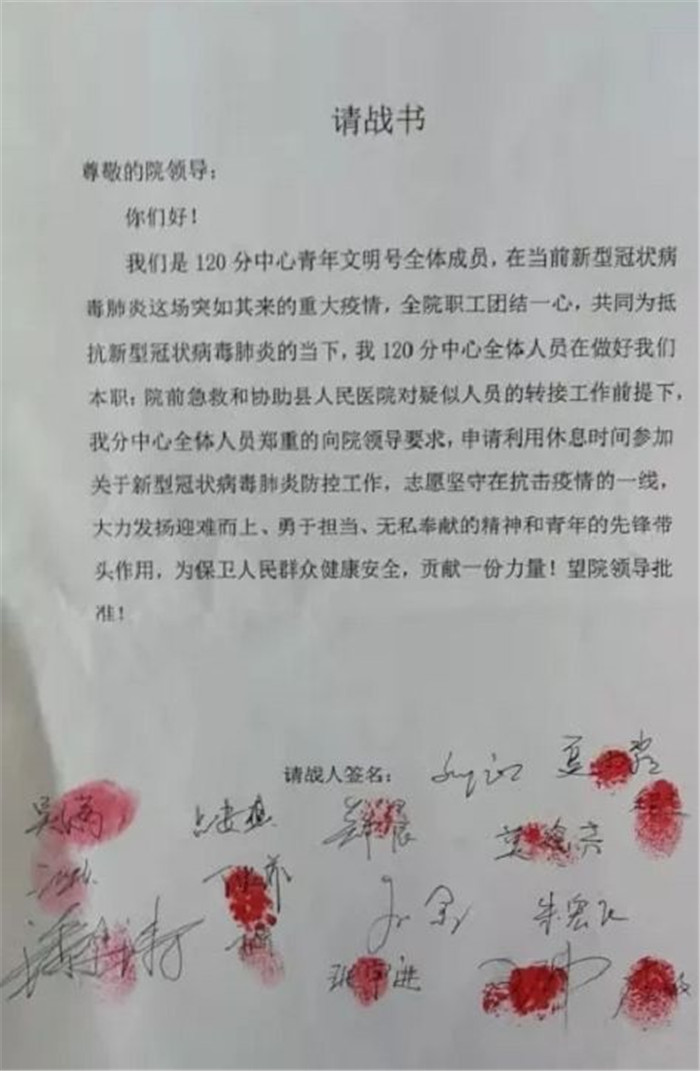 请战书
尊敬的院领导：
你们好！
我们是120分中心青年文明号全体成员，在当前新型冠状病
毒肺炎这场突如其来的重大疫情，全院职工团结一心，共同为抵
抗新型冠状病毒肺炎的当下，我120分中心全体人员在做好我们
本职：院前急救和协助县人民医院对疑似人员的转接工作前提下，
我分中心全体人员郑重的向院领导要求，申请利用休息时间参加
关于新型冠状病毒肺炎防控工作，志愿坚守在抗击疫情的一线，
大力发扬迎难而上、勇于担当、无私奉献的精神和青年的先锋带
头作用，为保卫人民群众健康安全，贡献一份力量！望院领导批
准！
请战人签名：
朱宏良